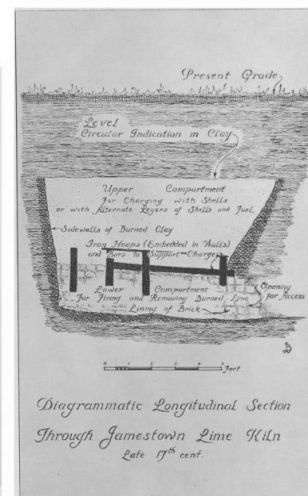 Present Grade
Level
Circular Indication in Clay
Upper Compartment
For Charging with Shells
or with Alternate Layers of Shells and Fuel,
Sidewalls of Burned Clay
Iron Hoops (Embedded in Walls)
and Bars to Support Charges
Lower Compartment
For Firing and Removing Burned Lime
Opening
for Access
Lining of Brick
Feet
Diagrammatic Longitudinal Section
Through Jamestown Lime Kiln
Late 17th cent.